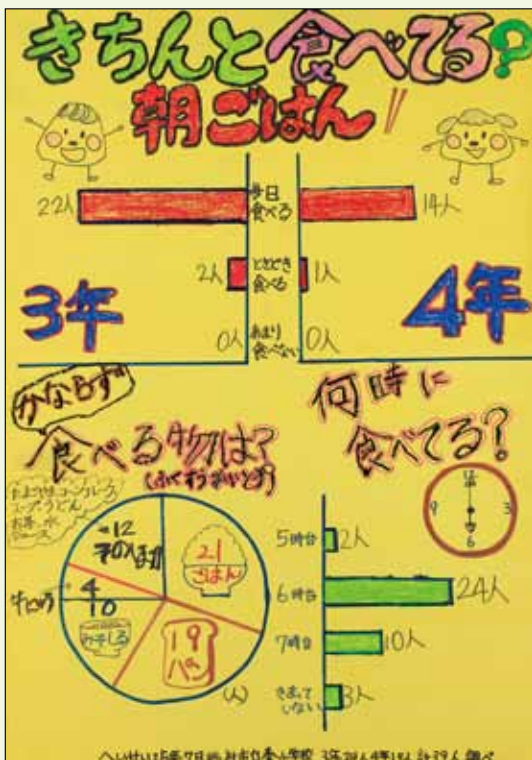 きちんと食べてる?
朝ごはん
22人 毎日食べる 14人
2人 ときどき食べる 1人
0人 あまり食べない 0人
3年 4年
かならず
食べる物は?
(ふくすうかいとう)
スープ、うどん
お茶、水
ジュース
12
そのほか
21
ごはん
牛にゅう 4
10
みそしる
19
パン
(人)
何時に
食べてる?
12
9 3
6
5時台 2人
6時台 24人
7時台 10人
きまっていない 3人